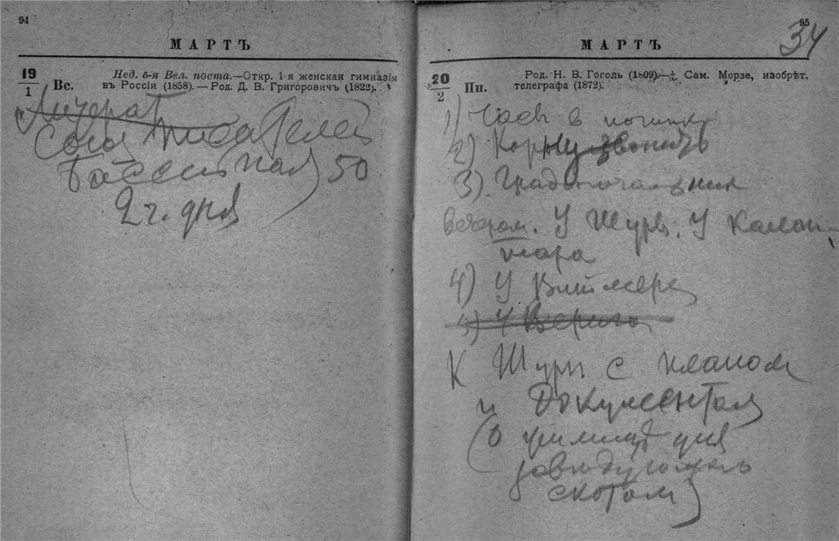 94
МАРТЪ
19
1
Вс.
Нед. 5-я Вел. поста.—Откр. 1-я женская гимназія
въ Россіи (1858).—Род. Д. В. Григоровичъ (1822).
Литерат
Союз писателей
Бассейная 50
2 ч. дня
95
34
МАРТЪ
20
2
Пн.
Род. Н. В. Гоголь (1809).—† Сам. Морзе, изобрѣт.
телеграфа (1872).
1) Часы в починк
2) звонить
3) Градоначальник
Вечером. У Шуры. У Калан-
тара
4) У Витмера
5) У
К Шуры с планом
и документам
(О училищ для
заведующ
скотом)